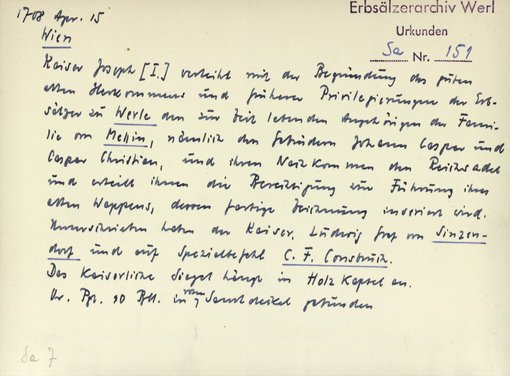 1708 Apr. 15
Erbsälzerarchiv Werl
Wien
Urkunden
Sa Nr. 151
Kaiser Joseph [I.] verleiht mit der Begründung des guten
alten Herkommens und früherer Privilegierungen der Erb-
sälzer zu Werle den zur Zeit lebenden Angehörigen der Fami-
lie von Mellin, nämlich den Gebrüdern Johann Caspar und
Caspar Christian, und ihren Nachkommen den Reichsadel
und erteilt ihnen die Berechtigung zur Führung ihres
alten Wappens, dessen farbige Zeichnung inseriert wird.
Unterschrieben haben der Kaiser, Ludwig Graf von Sinzen-
dorf und auf Spezialbefehl C. F. Consbruch.
Das Kaiserliche Siegel hängt in Holzkapsel an.
Or. Pgt. 10 Bll. in roten Samtdeckel gebunden
Sa 7